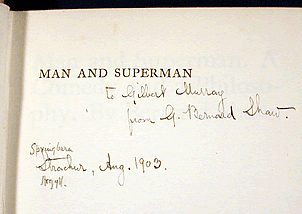 MAN AND SUPERMAN
to Gilbert Murray
from G. Bernard Shaw.
Springburn
Strachur, Aug. 1903.